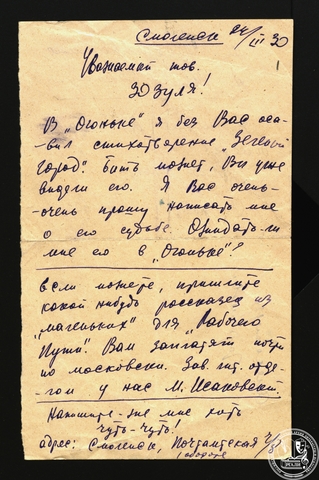 Смоленск 24/III 30
Уважаемый тов.
Зозуля!
В „Огоньке" я без Вас оста-
вил стихотворение „Зеленый
город". Быть может, Вы уже
видели его. Я Вас очень-
-очень прошу написать мне
о его судьбе. Ожидать-ли
мне его в „Огоньке"?
Если можете, пришлите
какой нибудь рассказец из
„маленьких" для „Рабочего
Пути". Вам заплатят почти
по московски. Зав. лит. отде-
лом у нас М. Исаковский.
Напишите-же мне хоть
чуть-чуть!
адрес: Смоленск, Почтамтская